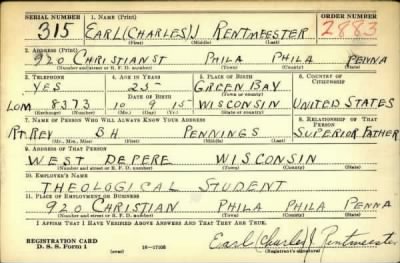 SERIAL NUMBER 1. NAME (Print) ORDER NUMBER
315 EARL (CHARLES) J RENTMEESTER 2883
(First) (Middle) (Last)
2. ADDRESS (Print)
920 CHRISTIAN ST PHILA PHILA PENNA
(Number and street or R. F. D. number) (Town) (County) (State)
3. TELEPHONE 4. AGE IN YEARS 5. PLACE OF BIRTH 6. COUNTRY OF CITIZENSHIP
YES 25 GREEN BAY
DATE OF BIRTH (Town or county)
LOM 8373 10 9 15 WISCONSIN UNITED STATES
(Exchange) (Number) (Mo.) (Day) (Yr.) (State or country)
7. NAME OF PERSON WHO WILL ALWAYS KNOW YOUR ADDRESS 8. RELATIONSHIP OF THAT PERSON
RT. REV B H PENNINGS SUPERIOR FATHER
(Mr., Mrs., Miss) (First) (Middle) (Last)
9. ADDRESS OF THAT PERSON
WEST DEPERE WISCONSIN
(Number and street or R. F. D. number) (Town) (County) (State)
10. EMPLOYER'S NAME
THEOLOGICAL STUDENT
11. PLACE OF EMPLOYMENT OR BUSINESS
920 CHRISTIAN PHILA PHILA PENNA
(Number and street or R. F. D. number) (Town) (County) (State)
I AFFIRM THAT I HAVE VERIFIED ABOVE ANSWERS AND THAT THEY ARE TRUE.
REGISTRATION CARD
D. S. S. Form 1 (over) 16—17105 Earl (Charles) J. Rentmeester
(Registrant's signature)